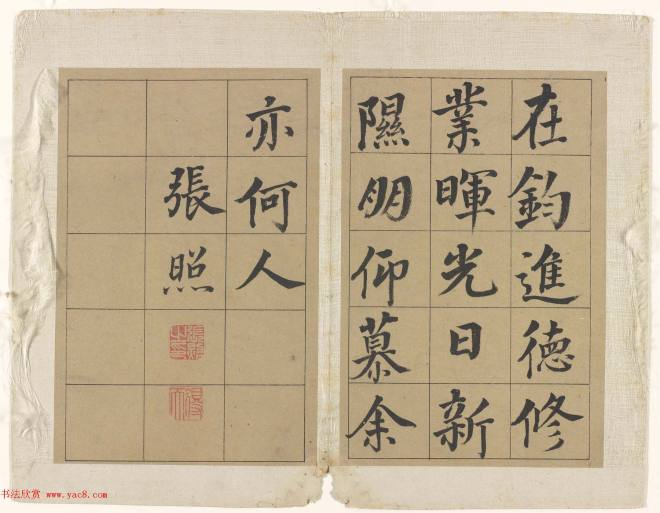 在鈞進德修
業暉光日新
隰朋仰慕余
亦何人
張照
书法欣赏 www.yac8.com